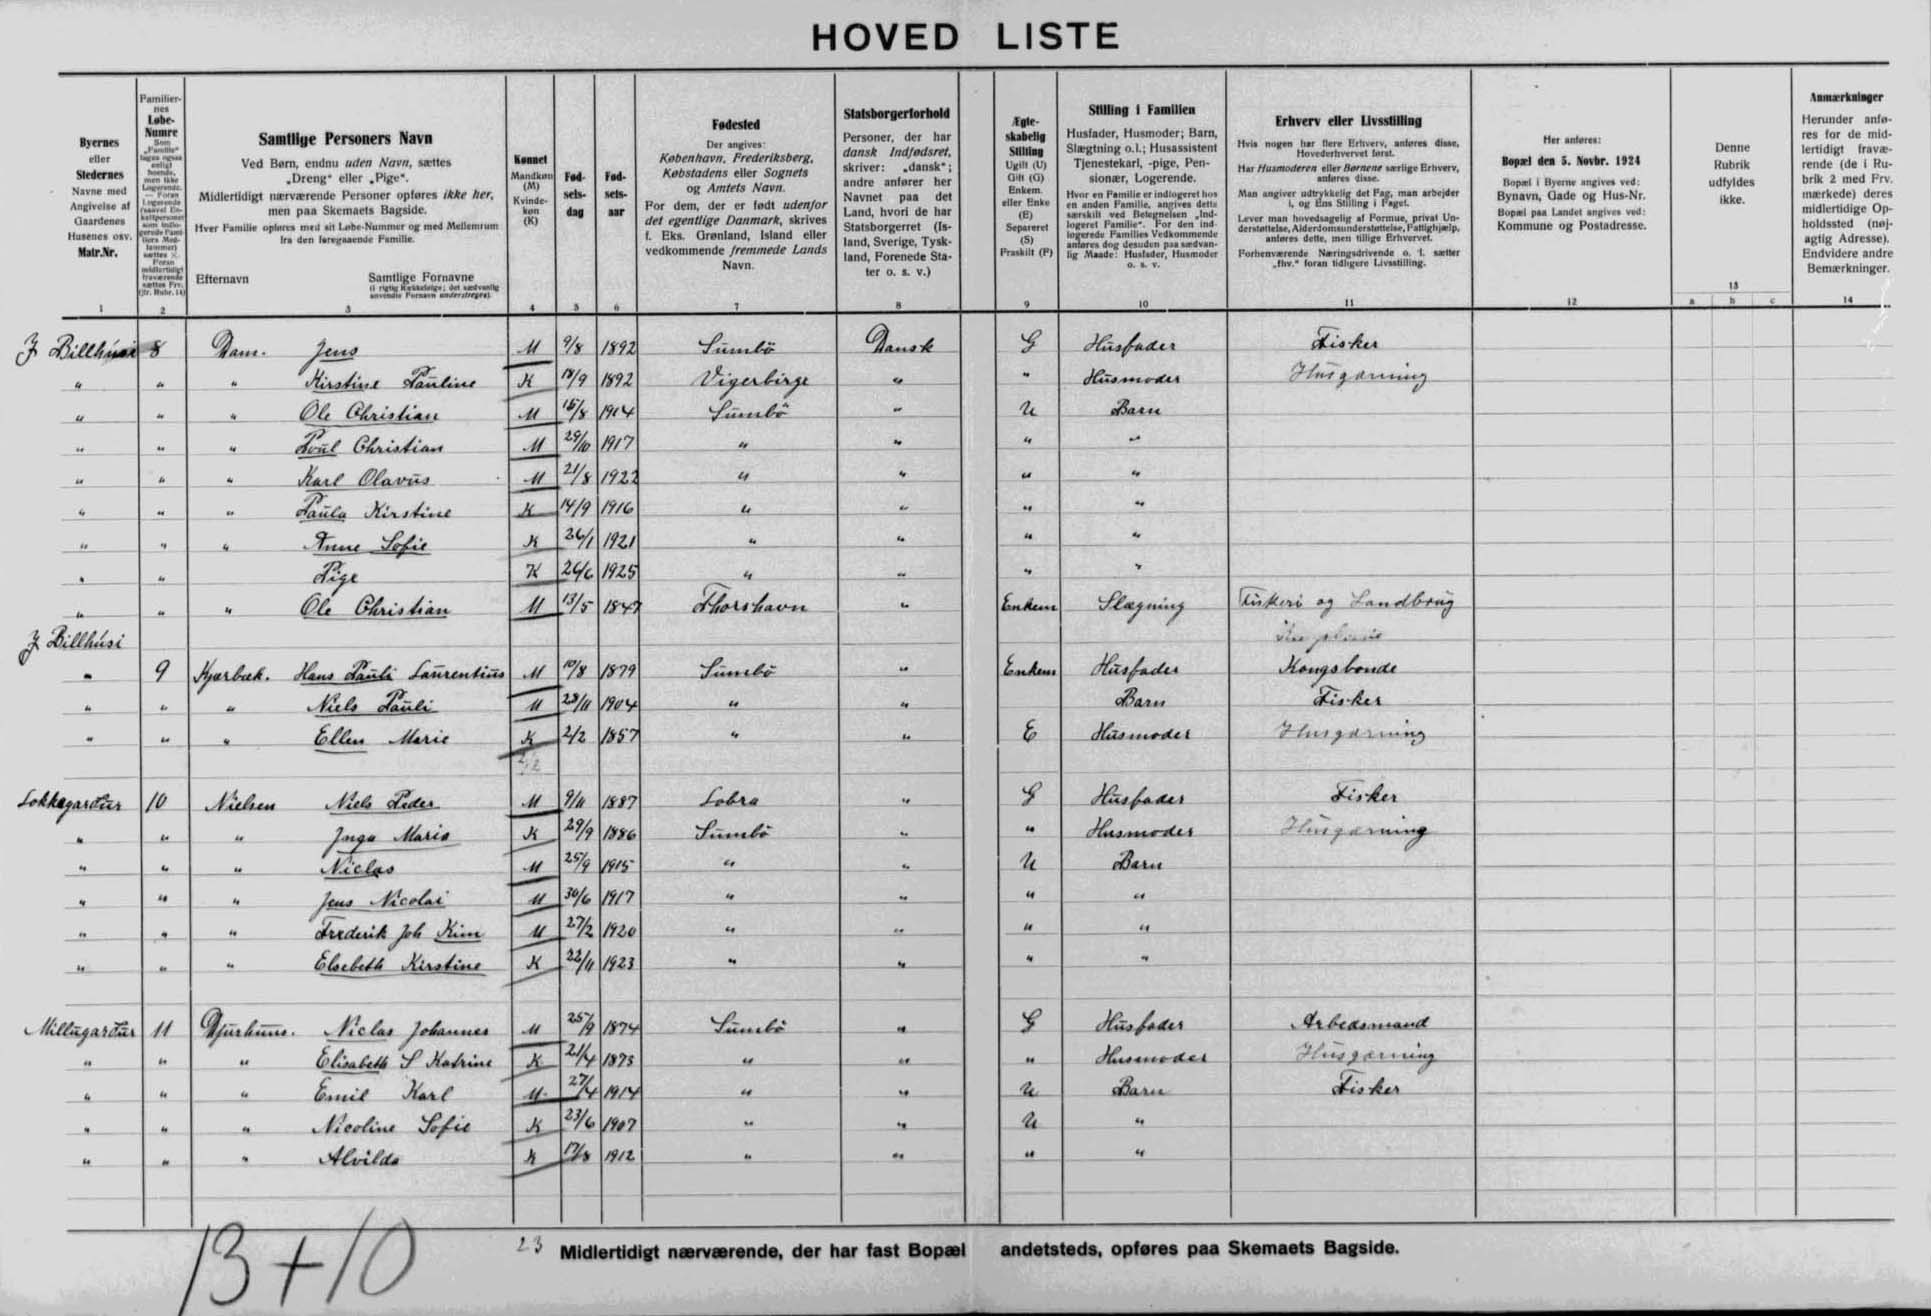 HOVED LISTE
Byernes
eller
Stedernes
Navne med
Angivelse af
Gaardenes
Husenes osv.
Matr.Nr.
1
Familier-
nes
Løbe-
Numre
Som
„Familie“
tages ogsaa
enligt
boende,
men ikke
Logerende.
2
Samtlige Personers Navn
Ved Børn, endnu uden Navn, sættes
„Dreng“ eller „Pige“.
Midlertidigt nærværende Personer opføres ikke her,
men paa Skemaets Bagside.
Hver Familie opføres med sit Løbe-Nummer og med Mellemrum
fra den foregaaende Familie.
Efternavn Samtlige Fornavne
(i rigtig Rækkefølge; det sædvanlig
anvendte Fornavn understreges).
3
Kønnet
Mandkøn
(M)
Kvinde-
køn
(K)
4
Fød-
sels-
dag
5
Fød-
sels-
aar
6
Fødested
Der angives:
København, Frederiksberg,
Købstadens eller Sognets
og Amtets Navn.
For dem, der er født udenfor
det egentlige Danmark, skrives
f. Eks. Grønland, Island eller
vedkommende fremmede Lands
Navn.
7
Statsborgerforhold
Personer, der har
dansk Indfødsret,
skriver: „dansk“;
andre anfører her
Navnet paa det
Land, hvori de har
Statsborgerret (Is-
land, Sverige, Tysk-
land, Forenede Sta-
ter o. s. v.)
8
Ægte-
skabelig
Stilling
Ugift (U)
Gift (G)
Enkem.
eller Enke
(E)
Separeret
(S)
Fraskilt (F)
9
Stilling i Familien
Husfader, Husmoder; Barn,
Slægtning o.l.; Husassistent
Tjenestekarl, -pige, Pen-
sionær, Logerende.
Hvor en Familie er indlogeret hos
en anden Familie, angives dette
særskilt ved Betegnelsen „Ind-
logeret Familie“. For den ind-
logerede Families Vedkommende
anføres dog desuden paa sædvan-
lig Maade: Husfader, Husmoder
o. s. v.
10
Erhverv eller Livsstilling
Hvis nogen har flere Erhverv, anføres disse,
Hovederhvervet først.
Har Husmoderen eller Børnene særlige Erhverv,
anføres disse.
Man angiver udtrykkelig det Fag, man arbejder
i, og Ens Stilling i Faget.
Lever man hovedsagelig af Formue, privat Un-
derstøttelse, Alderdomsunderstøttelse, Fattighjælp,
anføres dette, men tillige Erhvervet.
Forhenværende Næringsdrivende o. l. sætter
„fhv.“ foran tidligere Livsstilling.
11
Her anføres:
Bopæl den 5. Novbr. 1924
Bopæl i Byerne angives ved:
Bynavn, Gade og Hus-Nr.
Bopæl paa Landet angives ved:
Kommune og Postadresse.
12
Denne
Rubrik
udfyldes
ikke.
13
a b c
Anmærkninger
Herunder anfø-
res for de mid-
lertidigt fravæ-
rende (de i Ru-
brik 2 med Frv.
mærkede) deres
midlertidige Op-
holdssted (nøj-
agtig Adresse).
Endvidere andre
Bemærkninger.
14
J Billhúsi 8 Dam. Jens M 9/8 1892 Sumbö Dansk G Husfader Fisker
" " " Kirstine Pauline K 18/9 1892 Vigerbirge " " Husmoder Husgærning
" " " Ole Christian M 15/8 1914 Sumbö " U Barn
" " " Poul Christian M 29/10 1917 " " " "
" " " Karl Olavus M 21/8 1922 " " " "
" " " Paula Kirstine K 14/9 1916 " " " "
" " " Anne Sofie K 26/1 1921 " " " "
" " Pige K 26/6 1925 " " " "
" " " Ole Christian M 13/5 1847 Thorshavn " Enkem Slægning Fiskeri og Landbrug
J Billhúsi
" 9 Kjærbæk. Hans Pauli Laurentius M 10/8 1879 Sumbö " Enkem Husfader Kongsbonde
" " " Niels Pauli M 28/11 1904 " " Barn Fisker
" " " Ellen Marie K 2/2 1857 " " E Husmoder Husgærning
Lokkagarður 10 Nielsen Niels Peder M 9/11 1887 Lobra " G Husfader Fisker
" " " Inga Maria K 29/9 1886 Sumbö " " Husmoder Husgærning
" " " Niclas M 25/9 1915 " " U Barn
" " " Jens Nicolai M 30/6 1917 " " " "
" " " Frederik Joh Kim M 27/2 1920 " " " "
" " " Elsebeth Kirstine K 22/11 1923 " " " "
Millugarður 11 Djurhuus. Niclas Johannes M 25/9 1874 Sumbö " G Husfader Arbedsmand
" " " Elisabeth S Katrine K 21/4 1873 " " " Husmoder Husgærning
" " " Emil Karl M. 27/4 1914 " " U Barn Fisker
" " " Nicoline Sofie K 23/6 1907 " " U "
" " " Alvilda K 17/8 1912 " " " "
13+10
23 Midlertidigt nærværende, der har fast Bopæl andetsteds, opføres paa Skemaets Bagside.